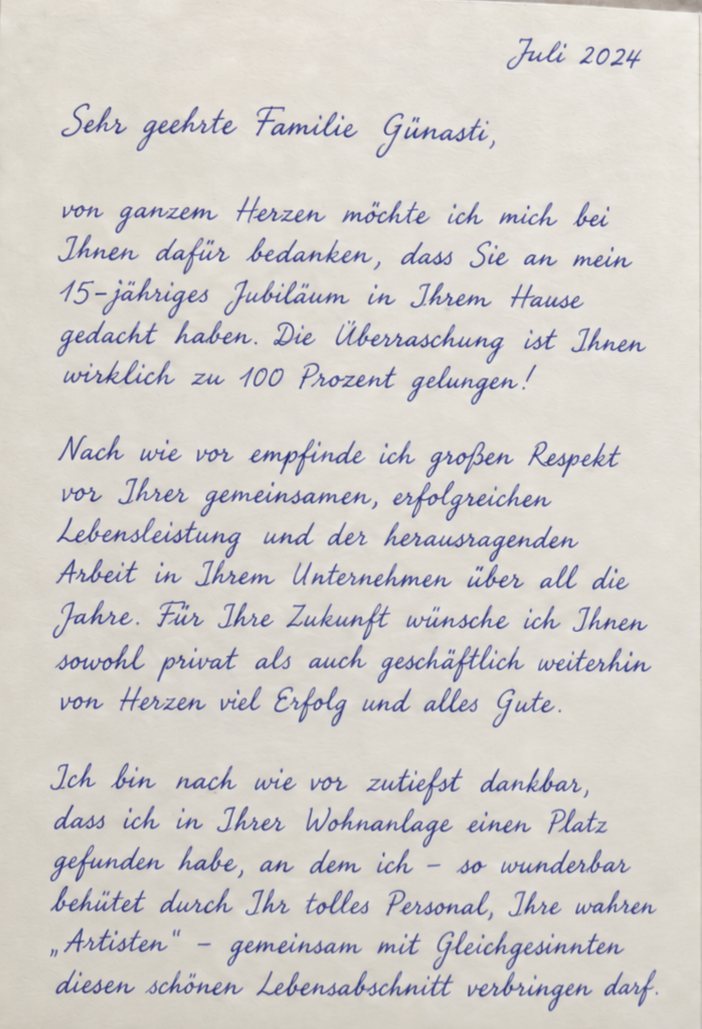 Juli 2024
Sehr geehrte Familie Günasti,
von ganzem Herzen möchte ich mich bei
Ihnen dafür bedanken, dass Sie an mein
15-jähriges Jubiläum in Ihrem Hause
gedacht haben. Die Überraschung ist Ihnen
wirklich zu 100 Prozent gelungen!
Nach wie vor empfinde ich großen Respekt
vor Ihrer gemeinsamen, erfolgreichen
Lebensleistung und der herausragenden
Arbeit in Ihrem Unternehmen über all die
Jahre. Für Ihre Zukunft wünsche ich Ihnen
sowohl privat als auch geschäftlich weiterhin
von Herzen viel Erfolg und alles Gute.
Ich bin nach wie vor zutiefst dankbar,
dass ich in Ihrer Wohnanlage einen Platz
gefunden habe, an dem ich – so wunderbar
behütet durch Ihr tolles Personal, Ihre wahren
„Artisten" – gemeinsam mit Gleichgesinnten
diesen schönen Lebensabschnitt verbringen darf.